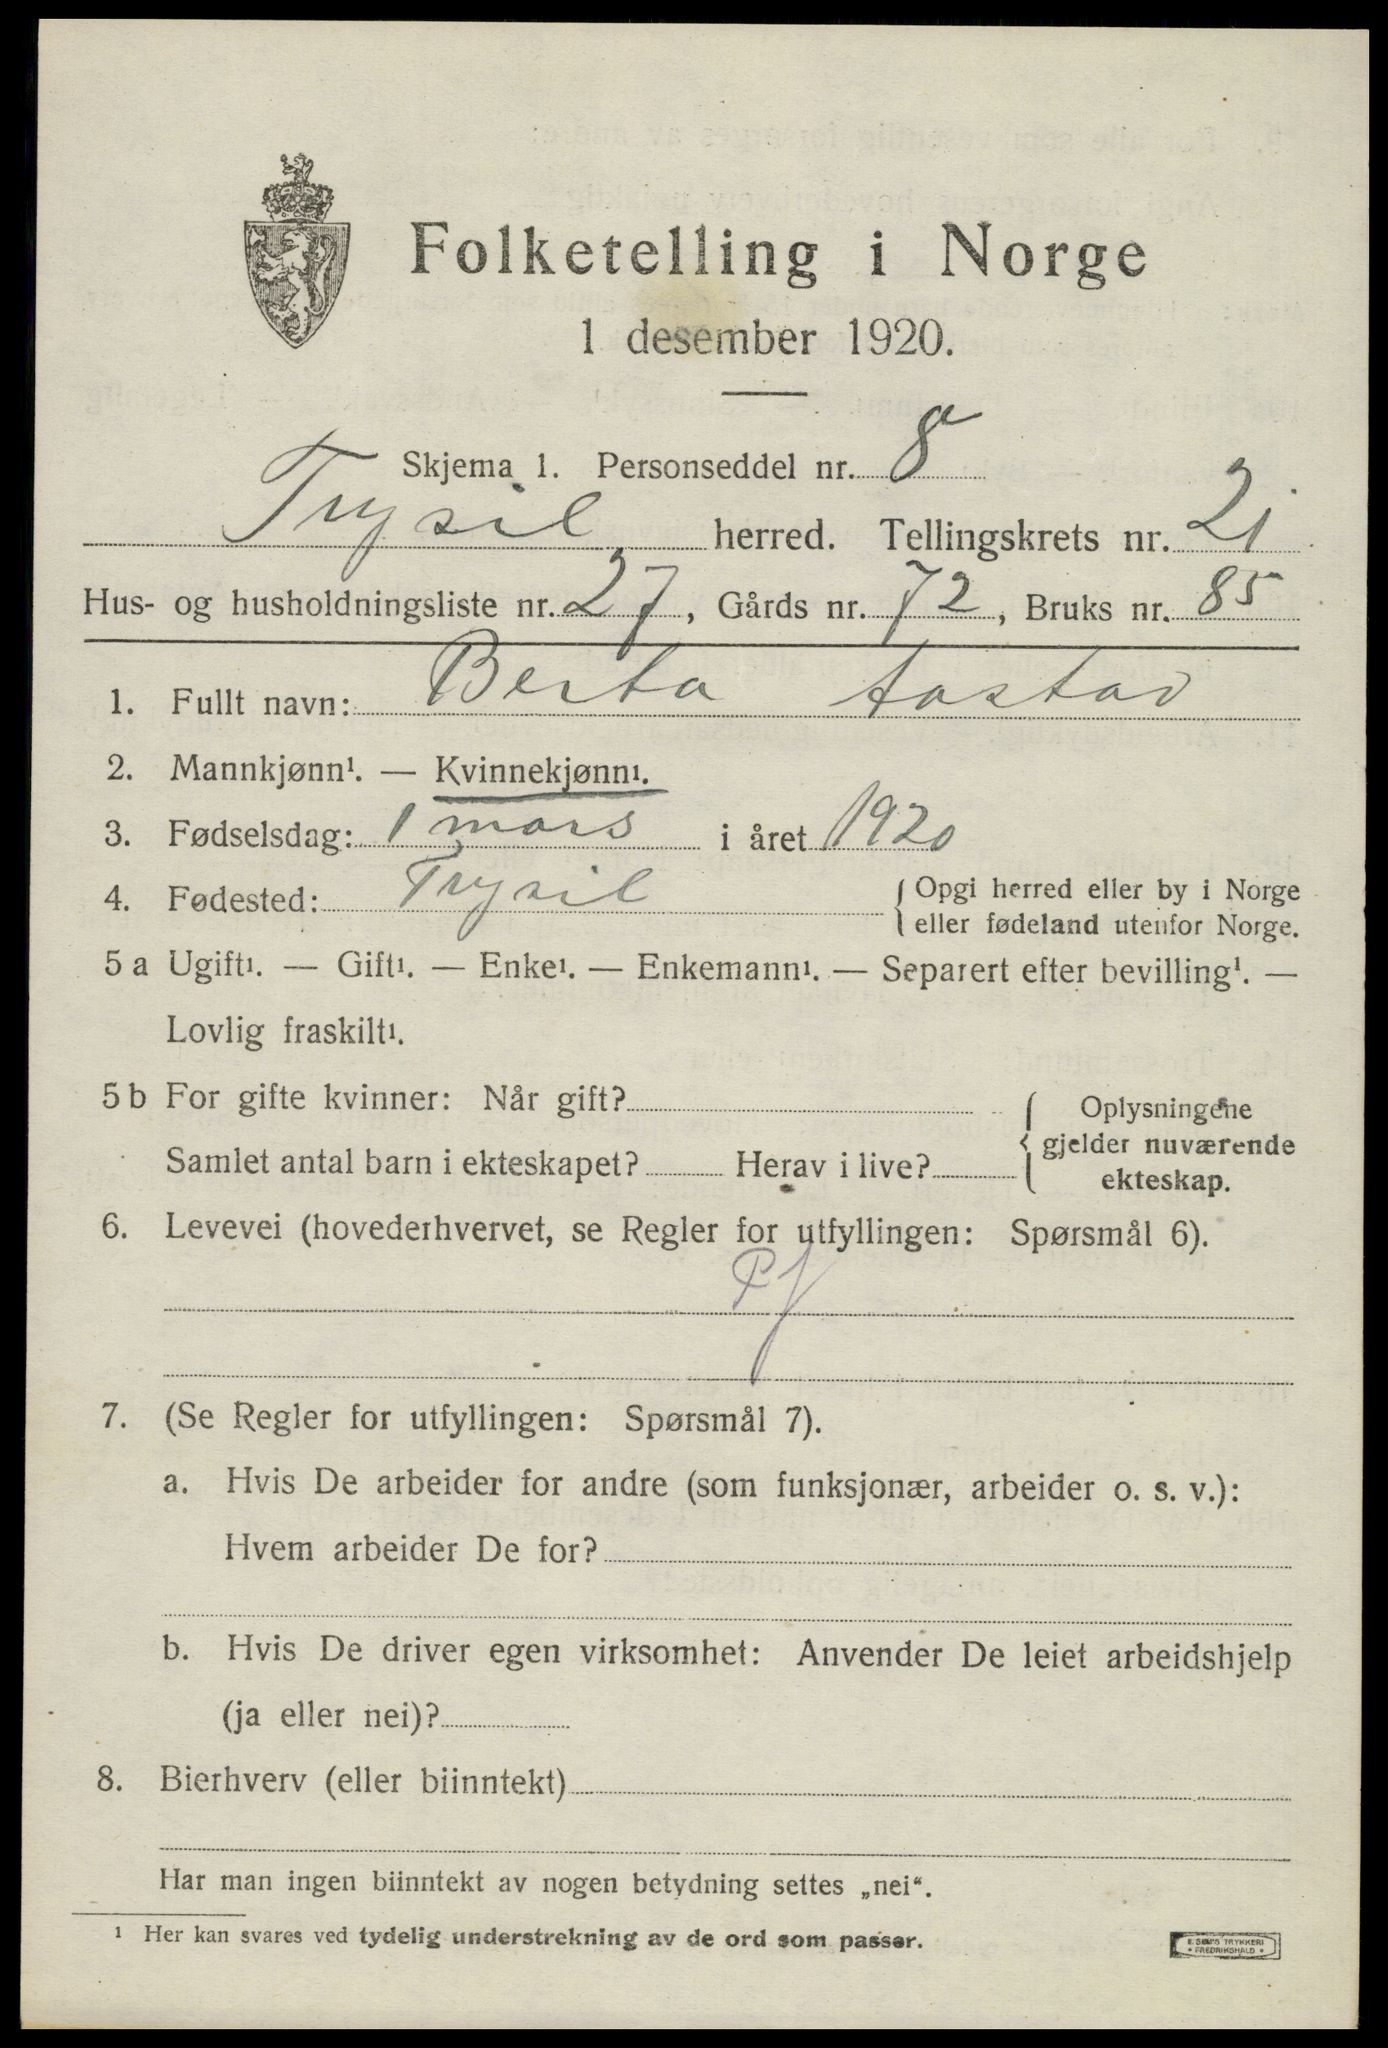 Folketelling i Norge
1 desember 1920.
Skjema 1. Personseddel nr. 8
Trysil herred. Tellingskrets nr. 21
Hus- og husholdningsliste nr. 27, Gårds nr. 72, Bruks nr. 85
1. Fullt navn: Berta Aastad
2. Mannkjønn¹. — Kvinnekjønn¹.
3. Fødselsdag: 1 mars i året 1920
4. Fødested: Trysil { Opgi herred eller by i Norge
eller fødeland utenfor Norge.
5 a Ugift¹. — Gift¹. — Enke¹. — Enkemann¹. — Separert efter bevilling¹. —
Lovlig fraskilt¹.
5 b For gifte kvinner: Når gift? { Oplysningene
Samlet antal barn i ekteskapet? Herav i live? gjelder nuværende
ekteskap.
6. Levevei (hovederhvervet, se Regler for utfyllingen: Spørsmål 6).
7. (Se Regler for utfyllingen: Spørsmål 7).
a. Hvis De arbeider for andre (som funksjonær, arbeider o. s. v.):
Hvem arbeider De for?
b. Hvis De driver egen virksomhet: Anvender De leiet arbeidshjelp
(ja eller nei)?
8. Bierhverv (eller biinntekt)
Har man ingen biinntekt av nogen betydning settes „nei“.
¹ Her kan svares ved tydelig understrekning av de ord som passer.
E. SEM'S TRYKKERI
• FREDRIKSHALD •